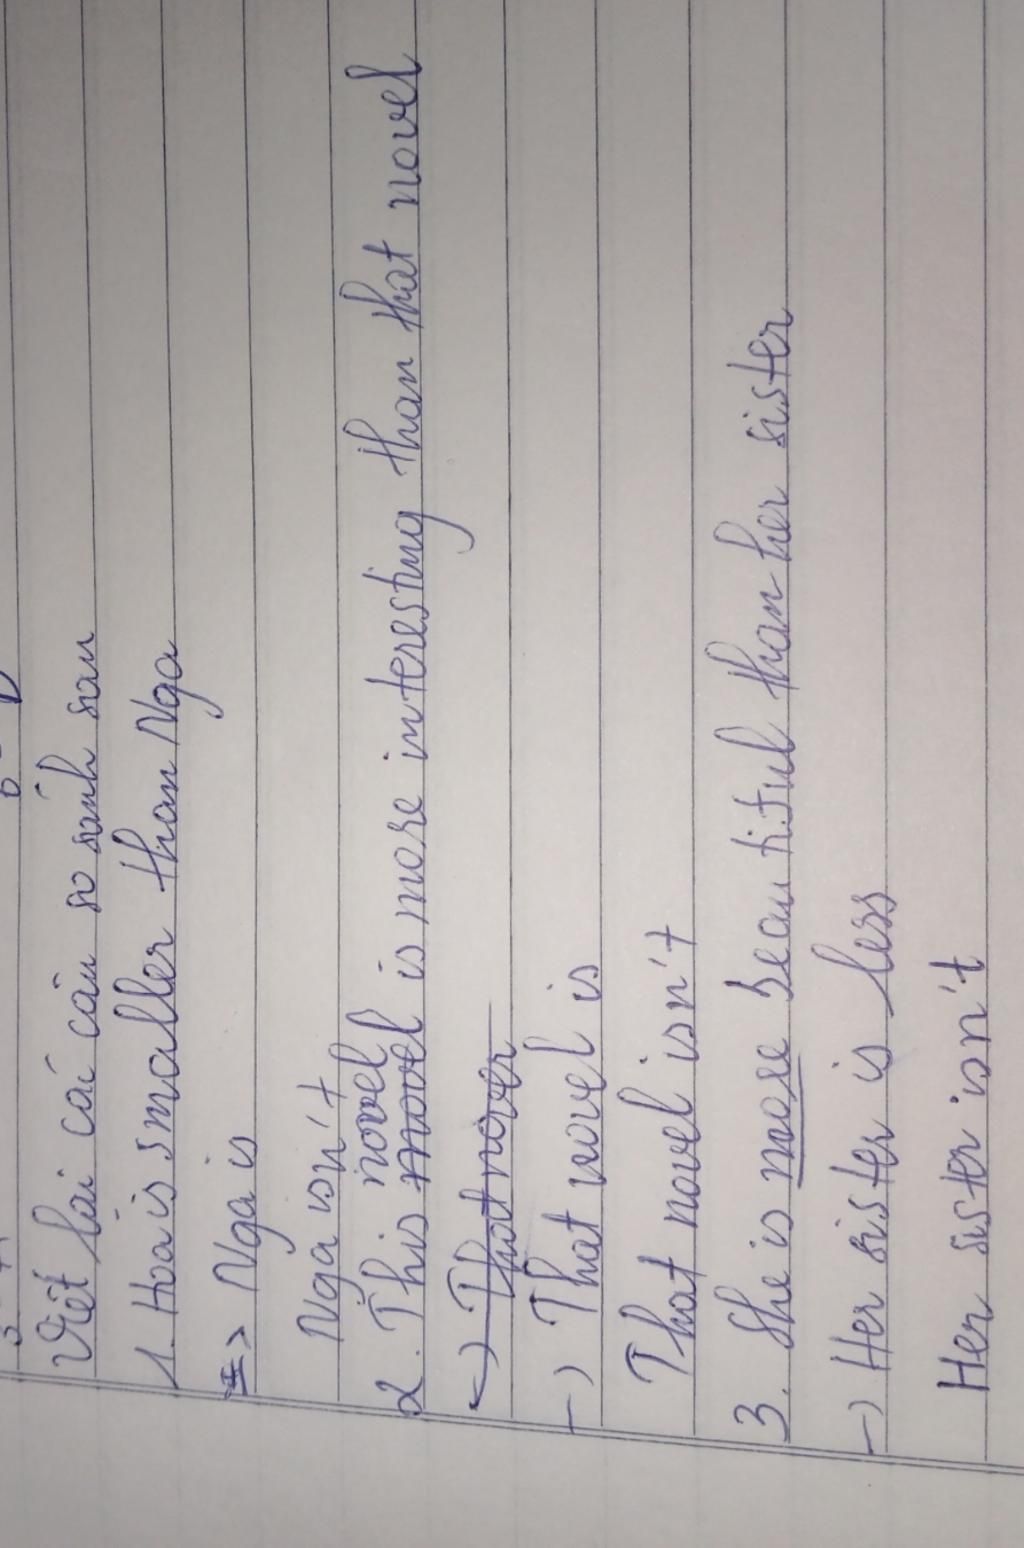 Viết lại các câu so sánh sau
1. Hoa is smaller than Nga
=> Nga is
Nga isn't
novel
2. This novel is more interesting than that novel
-) That nover
-) That novel is
That novel isn't
3. She is more beautiful than her sister
-) Her sister is less
Her sister isn't